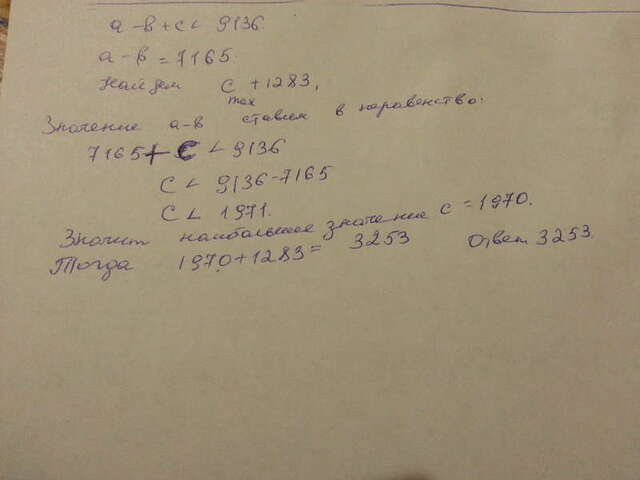 а - в + с < 9136
а - в = 7165.
Найдем с max + 1283,
Значение а-в ставим в неравенство.
7165 + с < 9136
с < 9136 - 7165
с < 1971.
Значит наибольшее значение с = 1970.
Тогда 1970 + 1283 = 3253 Ответ 3253.